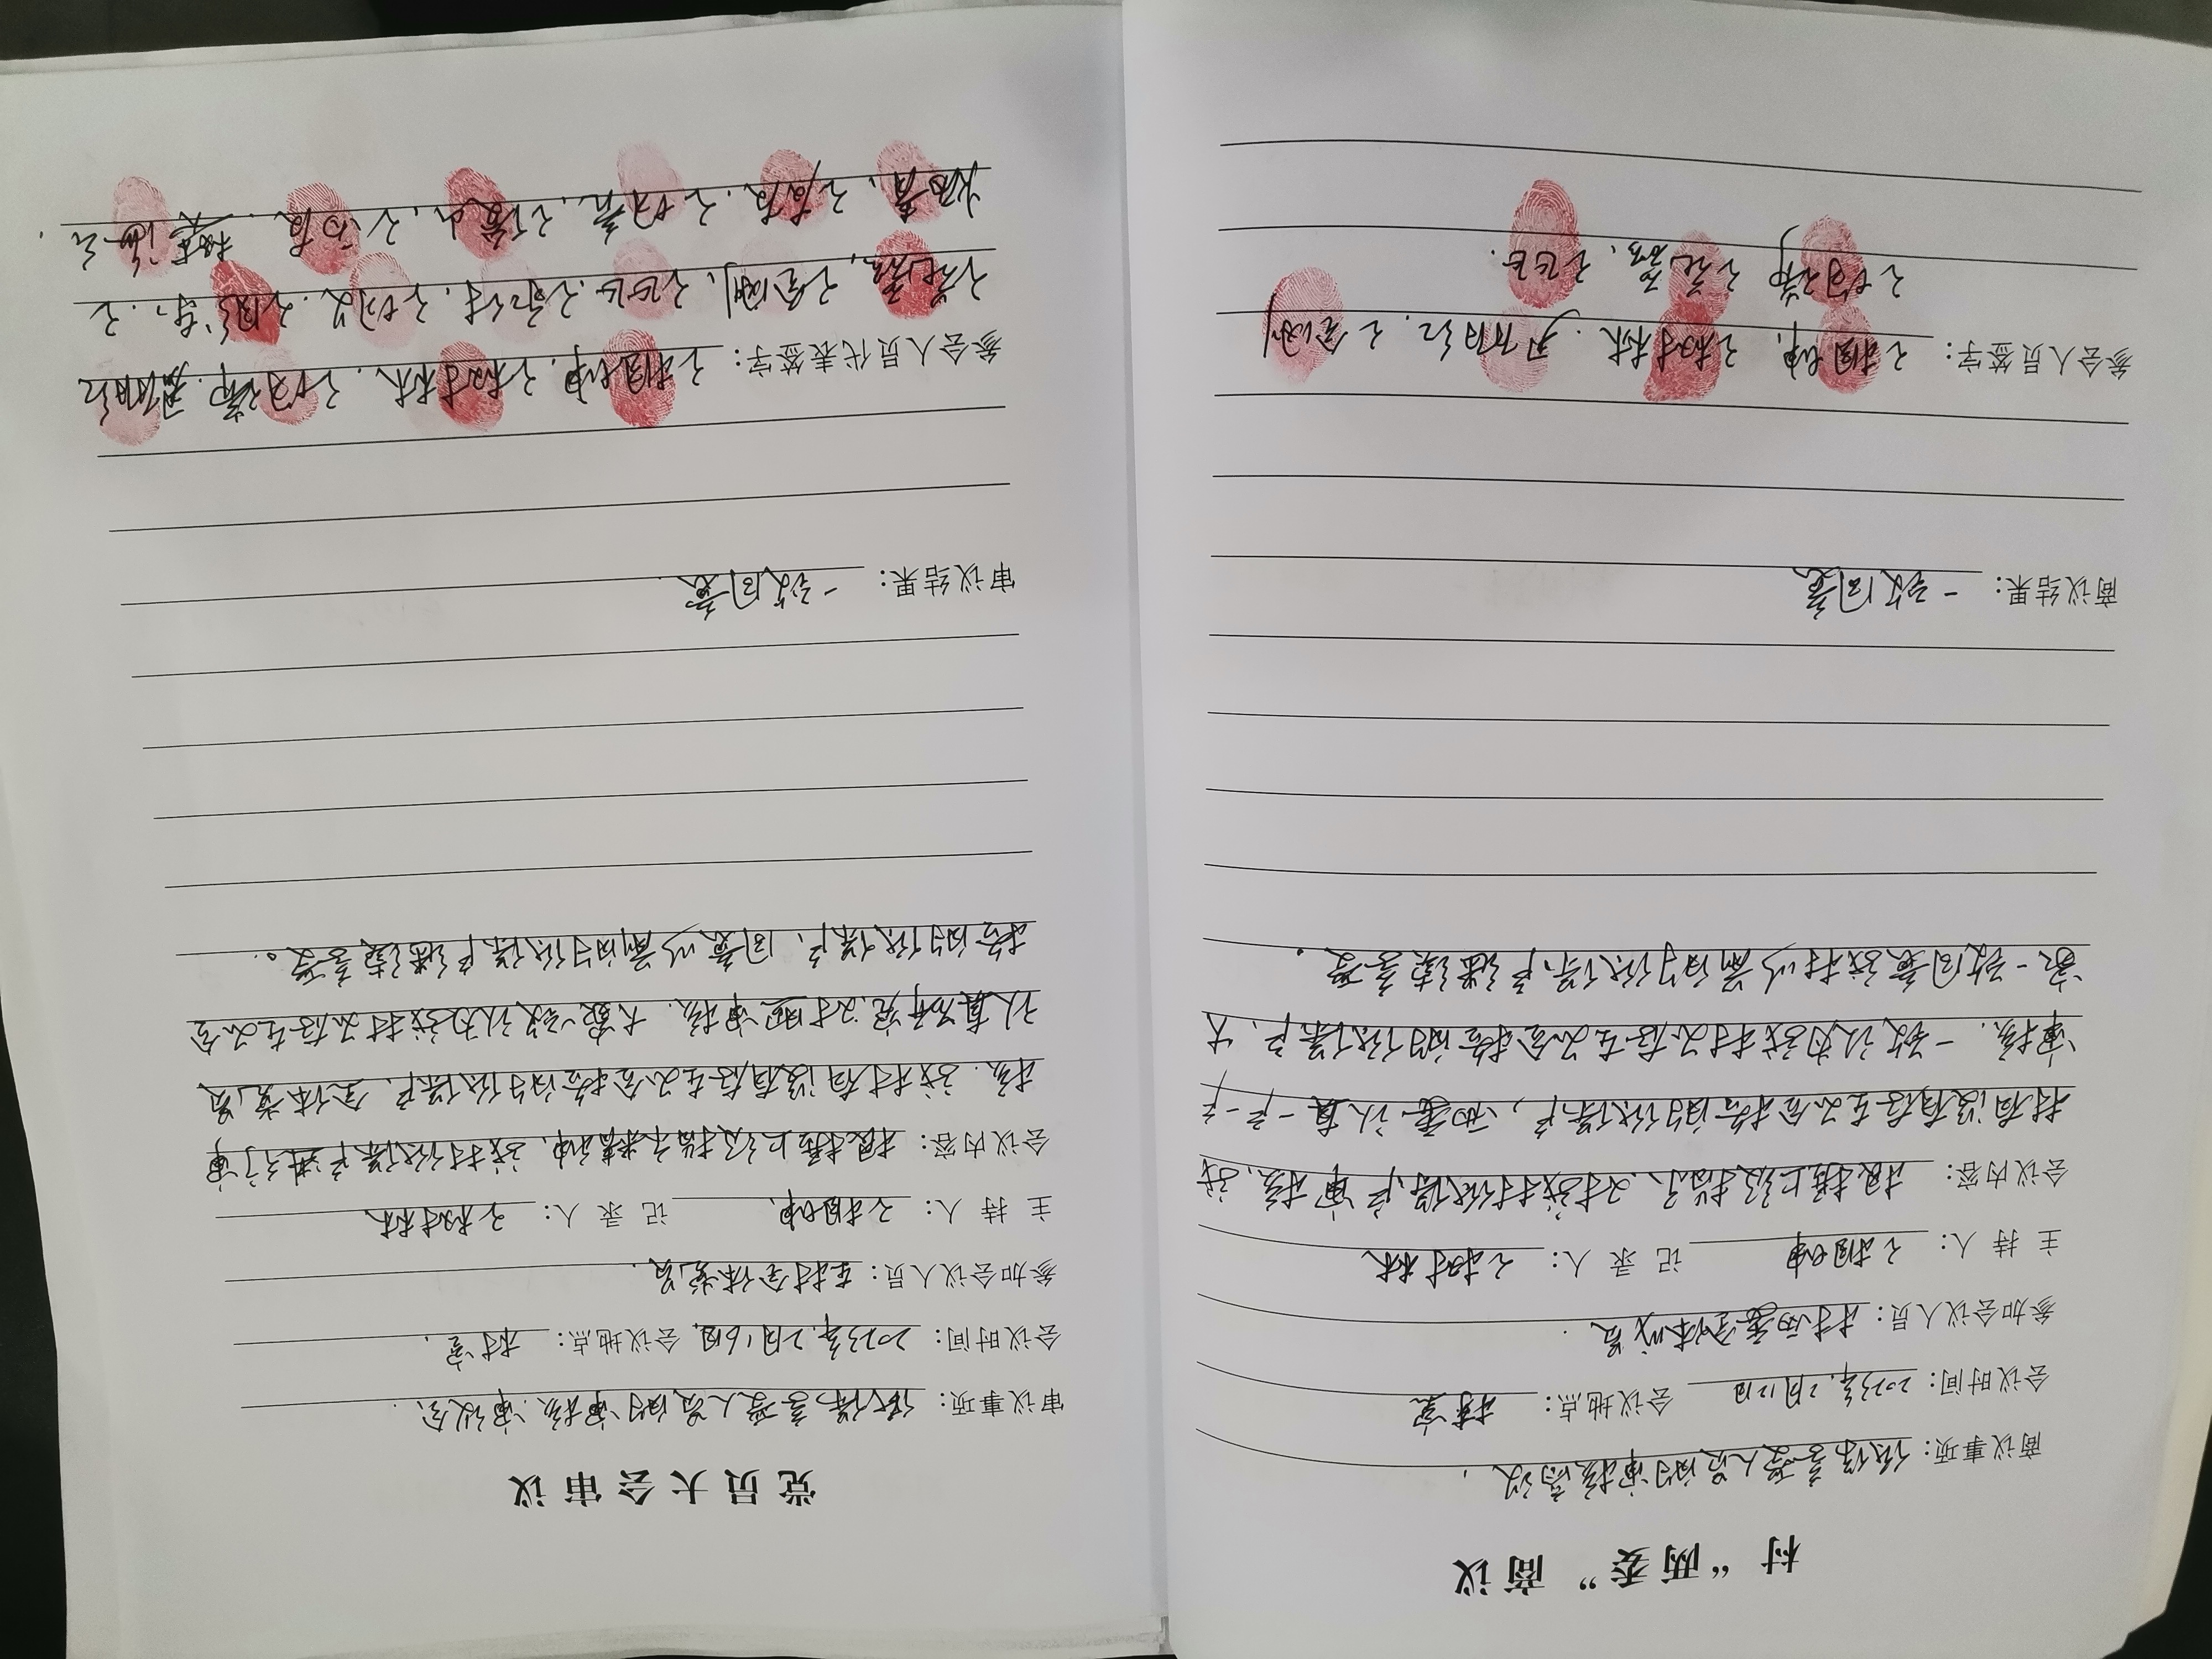 村“两委”商议
商议事项：低保享受人员的审核商议，
会议时间：2023年.2月12日 会议地点：村室
参加会议人员：村两委全体成员．
主持人：王相坤 记录人：王树林
会议内容：根据上级指示、对我村低保户审核、我
村有没有存在不合格的低保户，两委认真一户一户
审核．一致认为我村不存在不合格的低保户、大
家一致同意我村以前的低保户继续享受。
商议结果：一致同意
参会人员签字：王相坤、王树林．尹丽红．王金刚
王均瑞 王花磊、王飞飞．
党员大会审议
审议事项：低保享受人员的审核．审议会．
会议时间：2023年.2月16日. 会议地点：村室．
参加会议人员：在村全体党员．
主持人：王相坤、 记录人：王树林
会议内容：根据上级指示精神、我村低保户进行审
核．我村有没有存在不合格的低保户、全体党员
认真研究、对照审核．大家一致认为我村不存在不合
格的低保户、同意以前的低保户继续享受。
审议结果：一致同意．
参会人员代表签字：王相坤．王树林．王均瑞．尹丽红
王花磊，王金刚、王飞飞．王永付．王均义．王彤东、王
炳青、王友友．王均亮．王俊山、王丙友．樊海云．